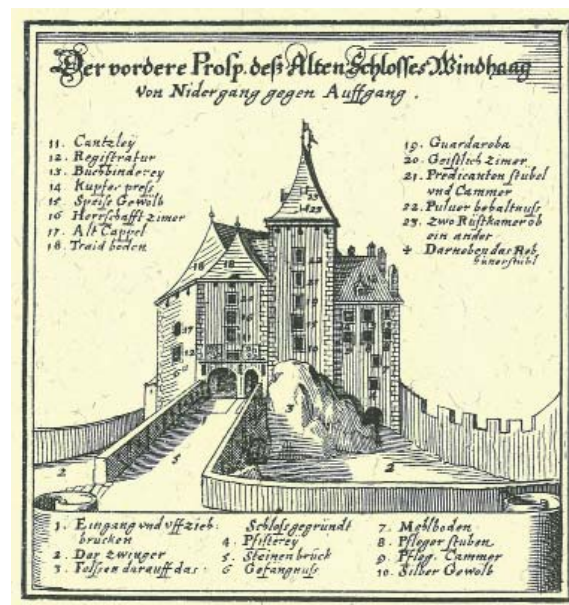 Der vordere Prosp. deß Alten Schlosses Windhaag
Von Nidergang gegen Auffgang.
11. Cantzley
12. Registratur
13. Buchbinderey
14 Kupfer press
15 Speise Gewölb
16 Herrschafft zimer
17. Alt Cappel
18. Traid boden
19. Guardaroba
20. Geistlich zimer
21. Predicanten stubel
vnd Cammer
22. Puluer behaltnuss
23. zwo Rüstkamer ob
ein ander
+ Darneben das Reb
hünerstübl
1. Eingang vnd vff zieh:
brucken
2. Der zwinger
3. Felssen darauff das:
Schloss gegründt
4. Pfisterey
5. Steinen brück
6 Gefängnuss
7. Mehlboden
8. Pfleger stuben
9. Pfleg. Cammer
10. Silber Gewölb